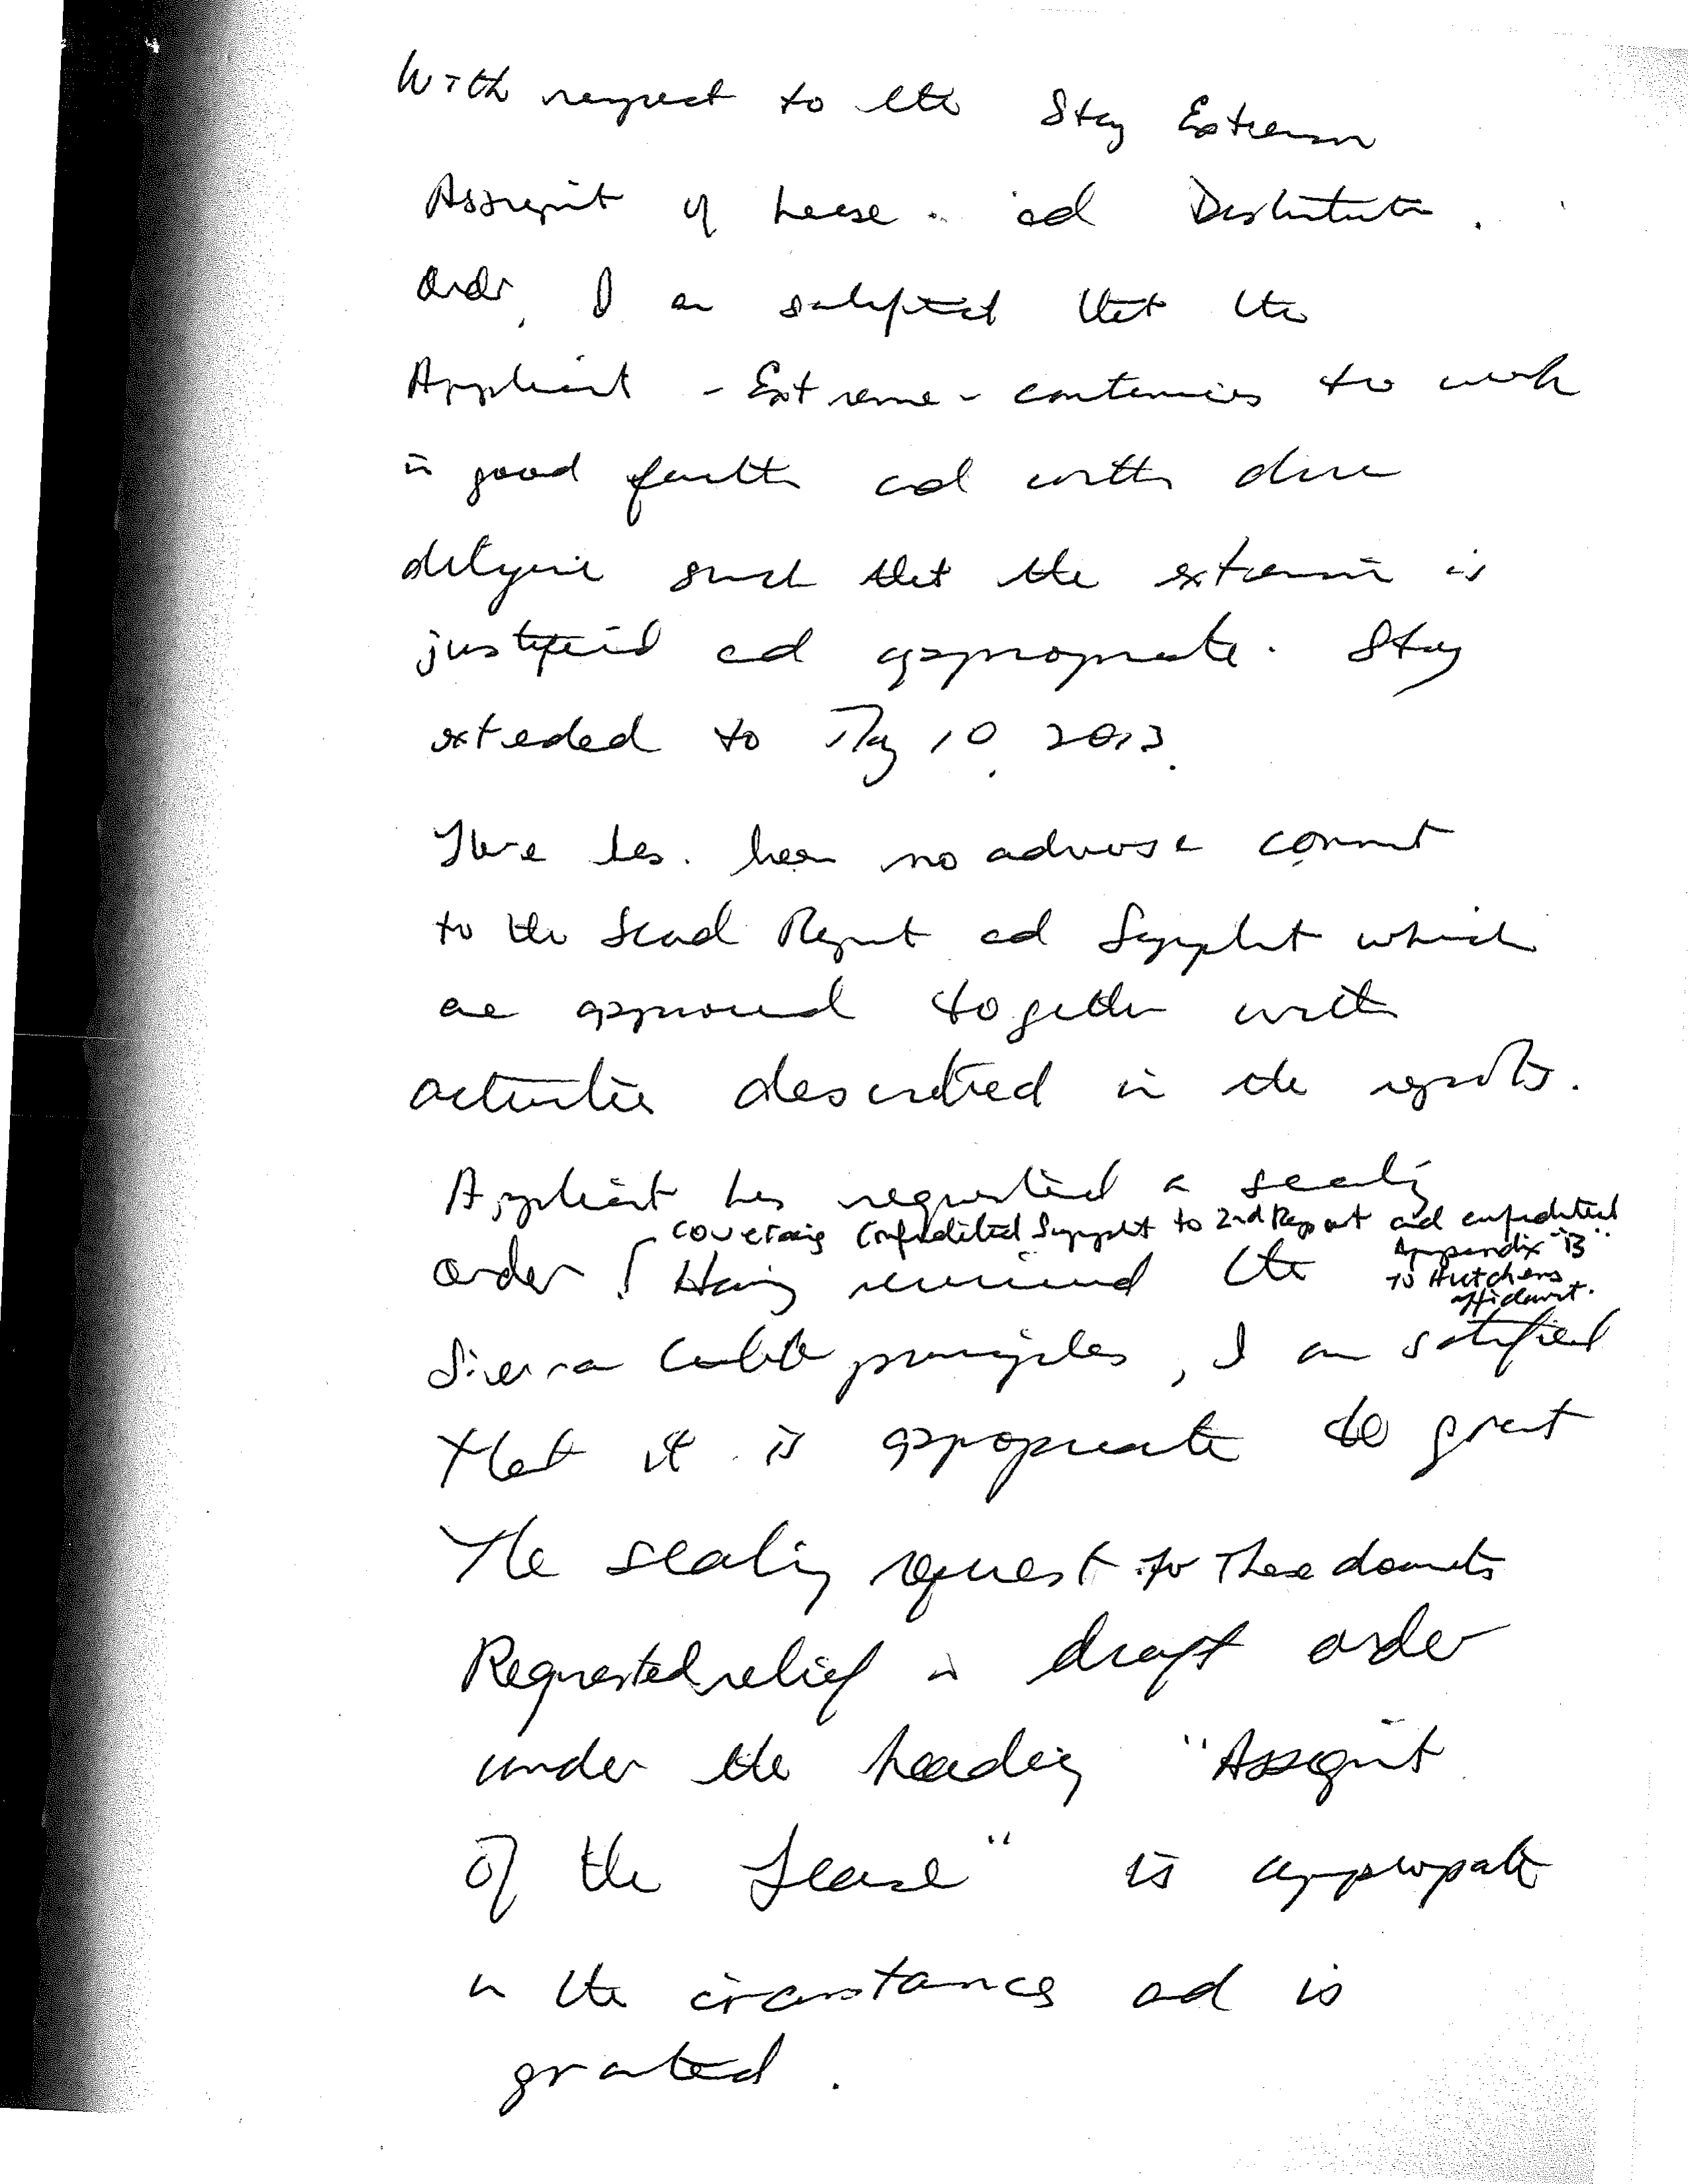 With respect to the Stay Extension
Assignment of Lease and Distribution
Order, I am satisfied that the
Applicant - Extreme - continues to work
in good faith and with due
diligence such that the extension is
justified and appropriate. Stay
extended to May 10, 2013.
There has been no adverse comment
to the Second Report and Supplement which
are approved together with
activities described in the reports.
Applicant has requested a sealing
covering Confidential Supplement to 2nd Report and confidential
Appendix "B"
order. Having reviewed the
to Hutchens
affidavit.
Sierra Club principles, I am satisfied
that it is appropriate to grant
the sealing request for these documents
Requested relief in draft order
under the heading "Assignment
of the Lease" is appropriate
in the circumstances and is
granted.